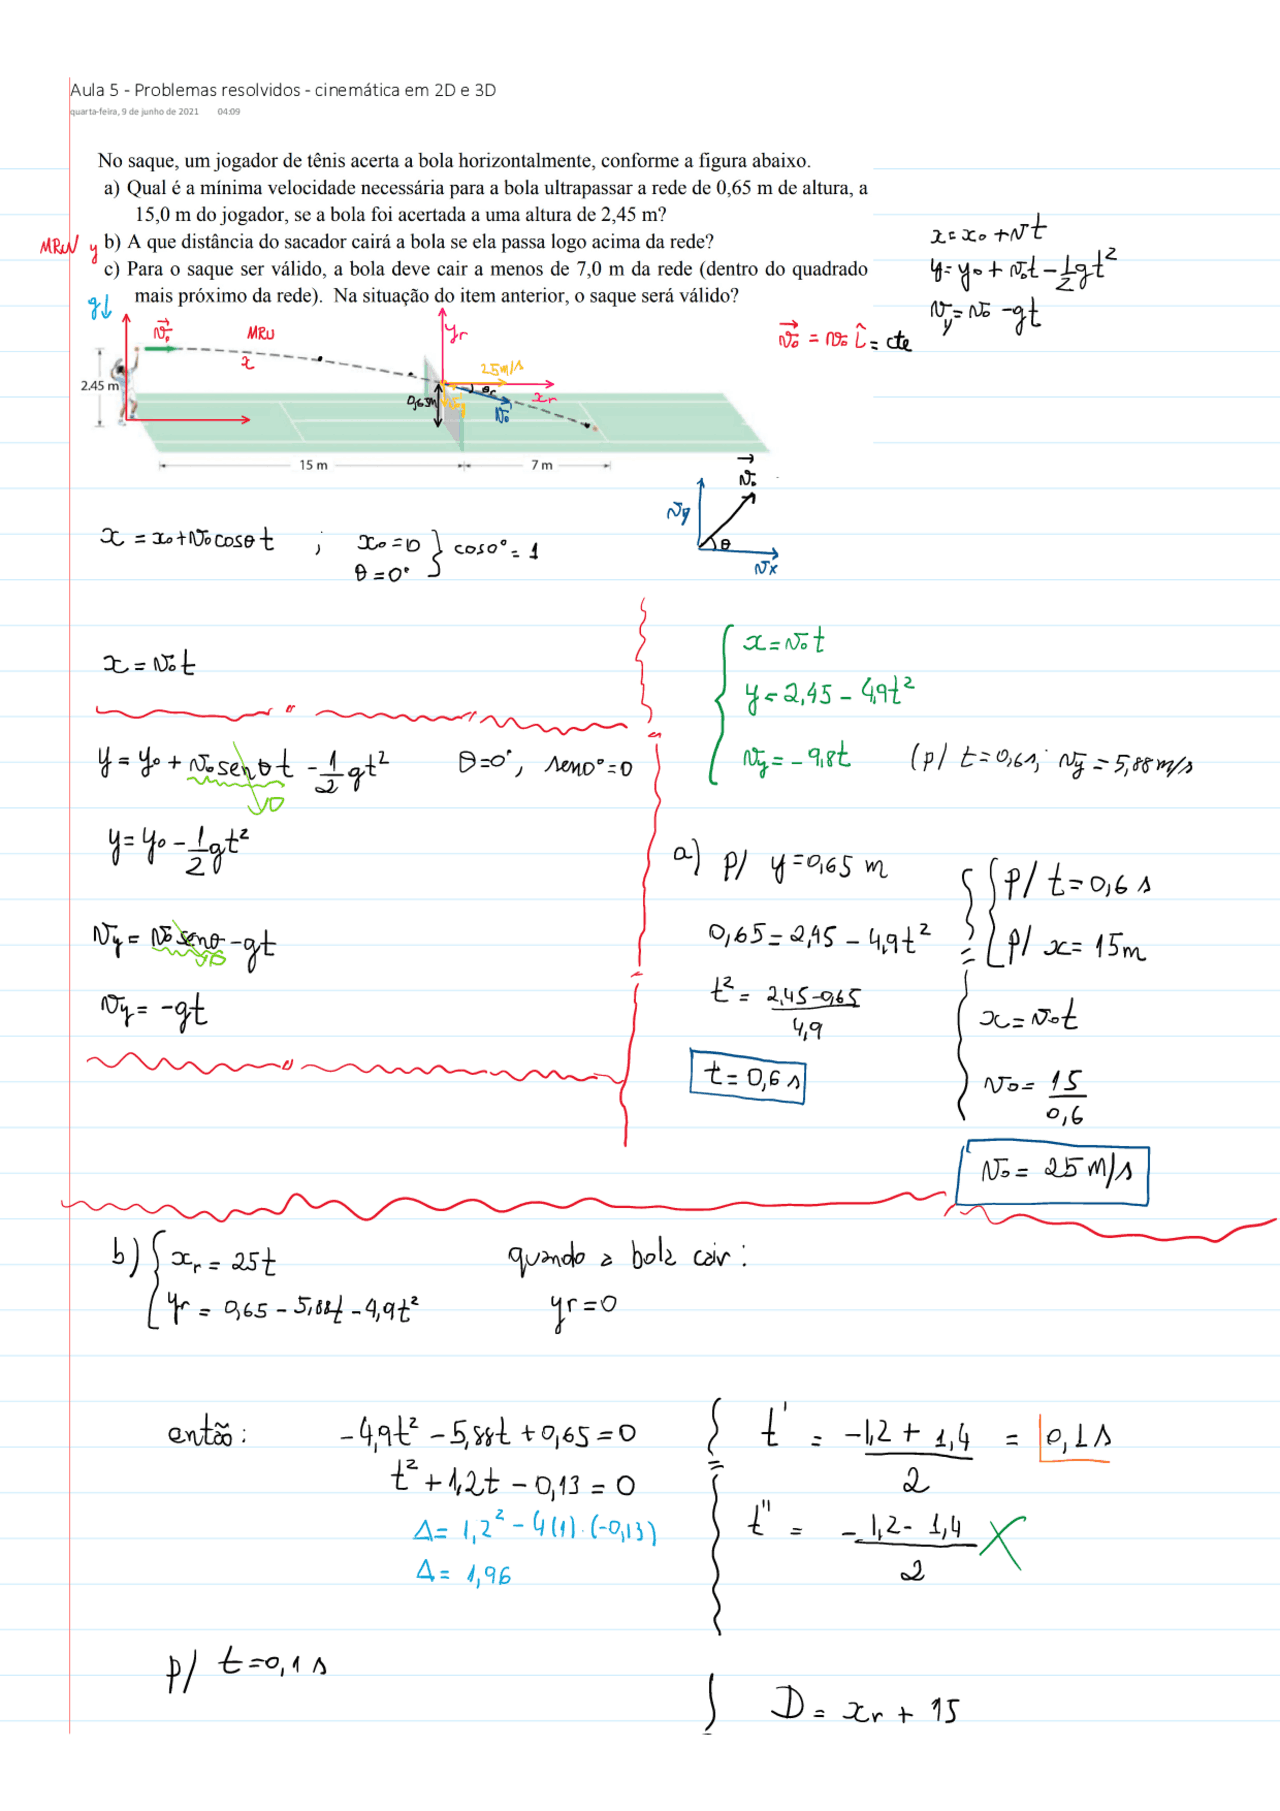 Aula 5 - Problemas resolvidos - cinemática em 2D e 3D
quarta-feira, 9 de junho de 2021 04:09
No saque, um jogador de tênis acerta a bola horizontalmente, conforme a figura abaixo.
a) Qual é a mínima velocidade necessária para a bola ultrapassar a rede de 0,65 m de altura, a
15,0 m do jogador, se a bola foi acertada a uma altura de 2,45 m?
MRUV y
b) A que distância do sacador cairá a bola se ela passa logo acima da rede?
c) Para o saque ser válido, a bola deve cair a menos de 7,0 m da rede (dentro do quadrado
mais próximo da rede). Na situação do item anterior, o saque será válido?
x = x₀ + vt
y = y₀ + v₀t - 1/2 gt²
v_y = v₀ - gt
v⃗₀ = v₀ î = cte
g↓
v⃗₀
MRU
x
y_r
25m/s
θ_r
x_r
2.45 m
0,65m
v₀
15 m
7 m
v⃗₀
v_y
θ
v_x
x = x₀ + v₀ cosθ t ; x₀ = 0
θ = 0° } cos0° = 1
x = v₀t
y = y₀ + v₀ senθ t - 1/2 gt² θ = 0°, sen0° = 0
0
y = y₀ - 1/2 gt²
v_y = v₀ senθ - gt
0
v_y = -gt
x = v₀t
y = 2,45 - 4,9t²
v_y = -9,8t (p/ t = 0,6s; v_y = 5,88m/s
a) p/ y = 0,65 m
0,65 = 2,45 - 4,9t²
t² = 2,45 - 0,65 / 4,9
t = 0,6 s
p/ t = 0,6 s
p/ x = 15m
x = v₀t
v₀ = 15 / 0,6
v₀ = 25 m/s
b) { x_r = 25t quando a bola cair:
y_r = 0,65 - 5,88t - 4,9t² y_r = 0
então: -4,9t² - 5,88t + 0,65 = 0
t² + 1,2t - 0,13 = 0
Δ = 1,2² - 4(1).(-0,13)
Δ = 1,96
t' = -1,2 + 1,4 / 2 = 0,1s
t'' = -1,2 - 1,4 / 2 X
p/ t = 0,1 s
D = x_r + 15